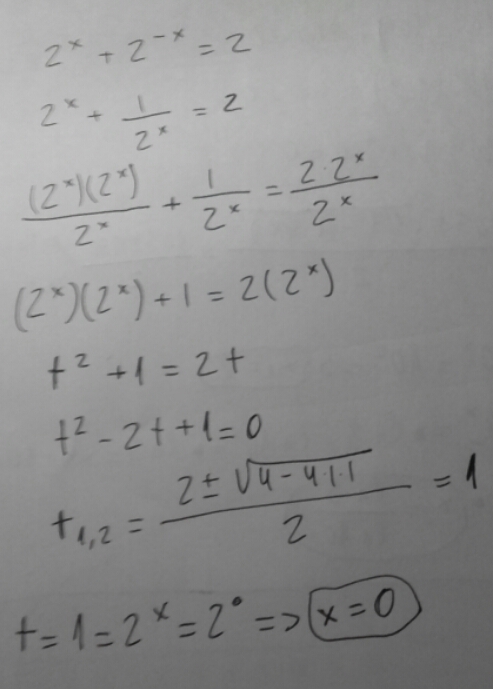 2ˣ + 2⁻ˣ = 2
2ˣ + 1/2ˣ = 2
(2ˣ)(2ˣ)/2ˣ + 1/2ˣ = 2·2ˣ/2ˣ
(2ˣ)(2ˣ) + 1 = 2(2ˣ)
t² + 1 = 2t
t² - 2t + 1 = 0
t₁,₂ = (2 ± √(4 - 4·1·1))/2 = 1
t = 1 = 2ˣ = 2⁰ => x = 0